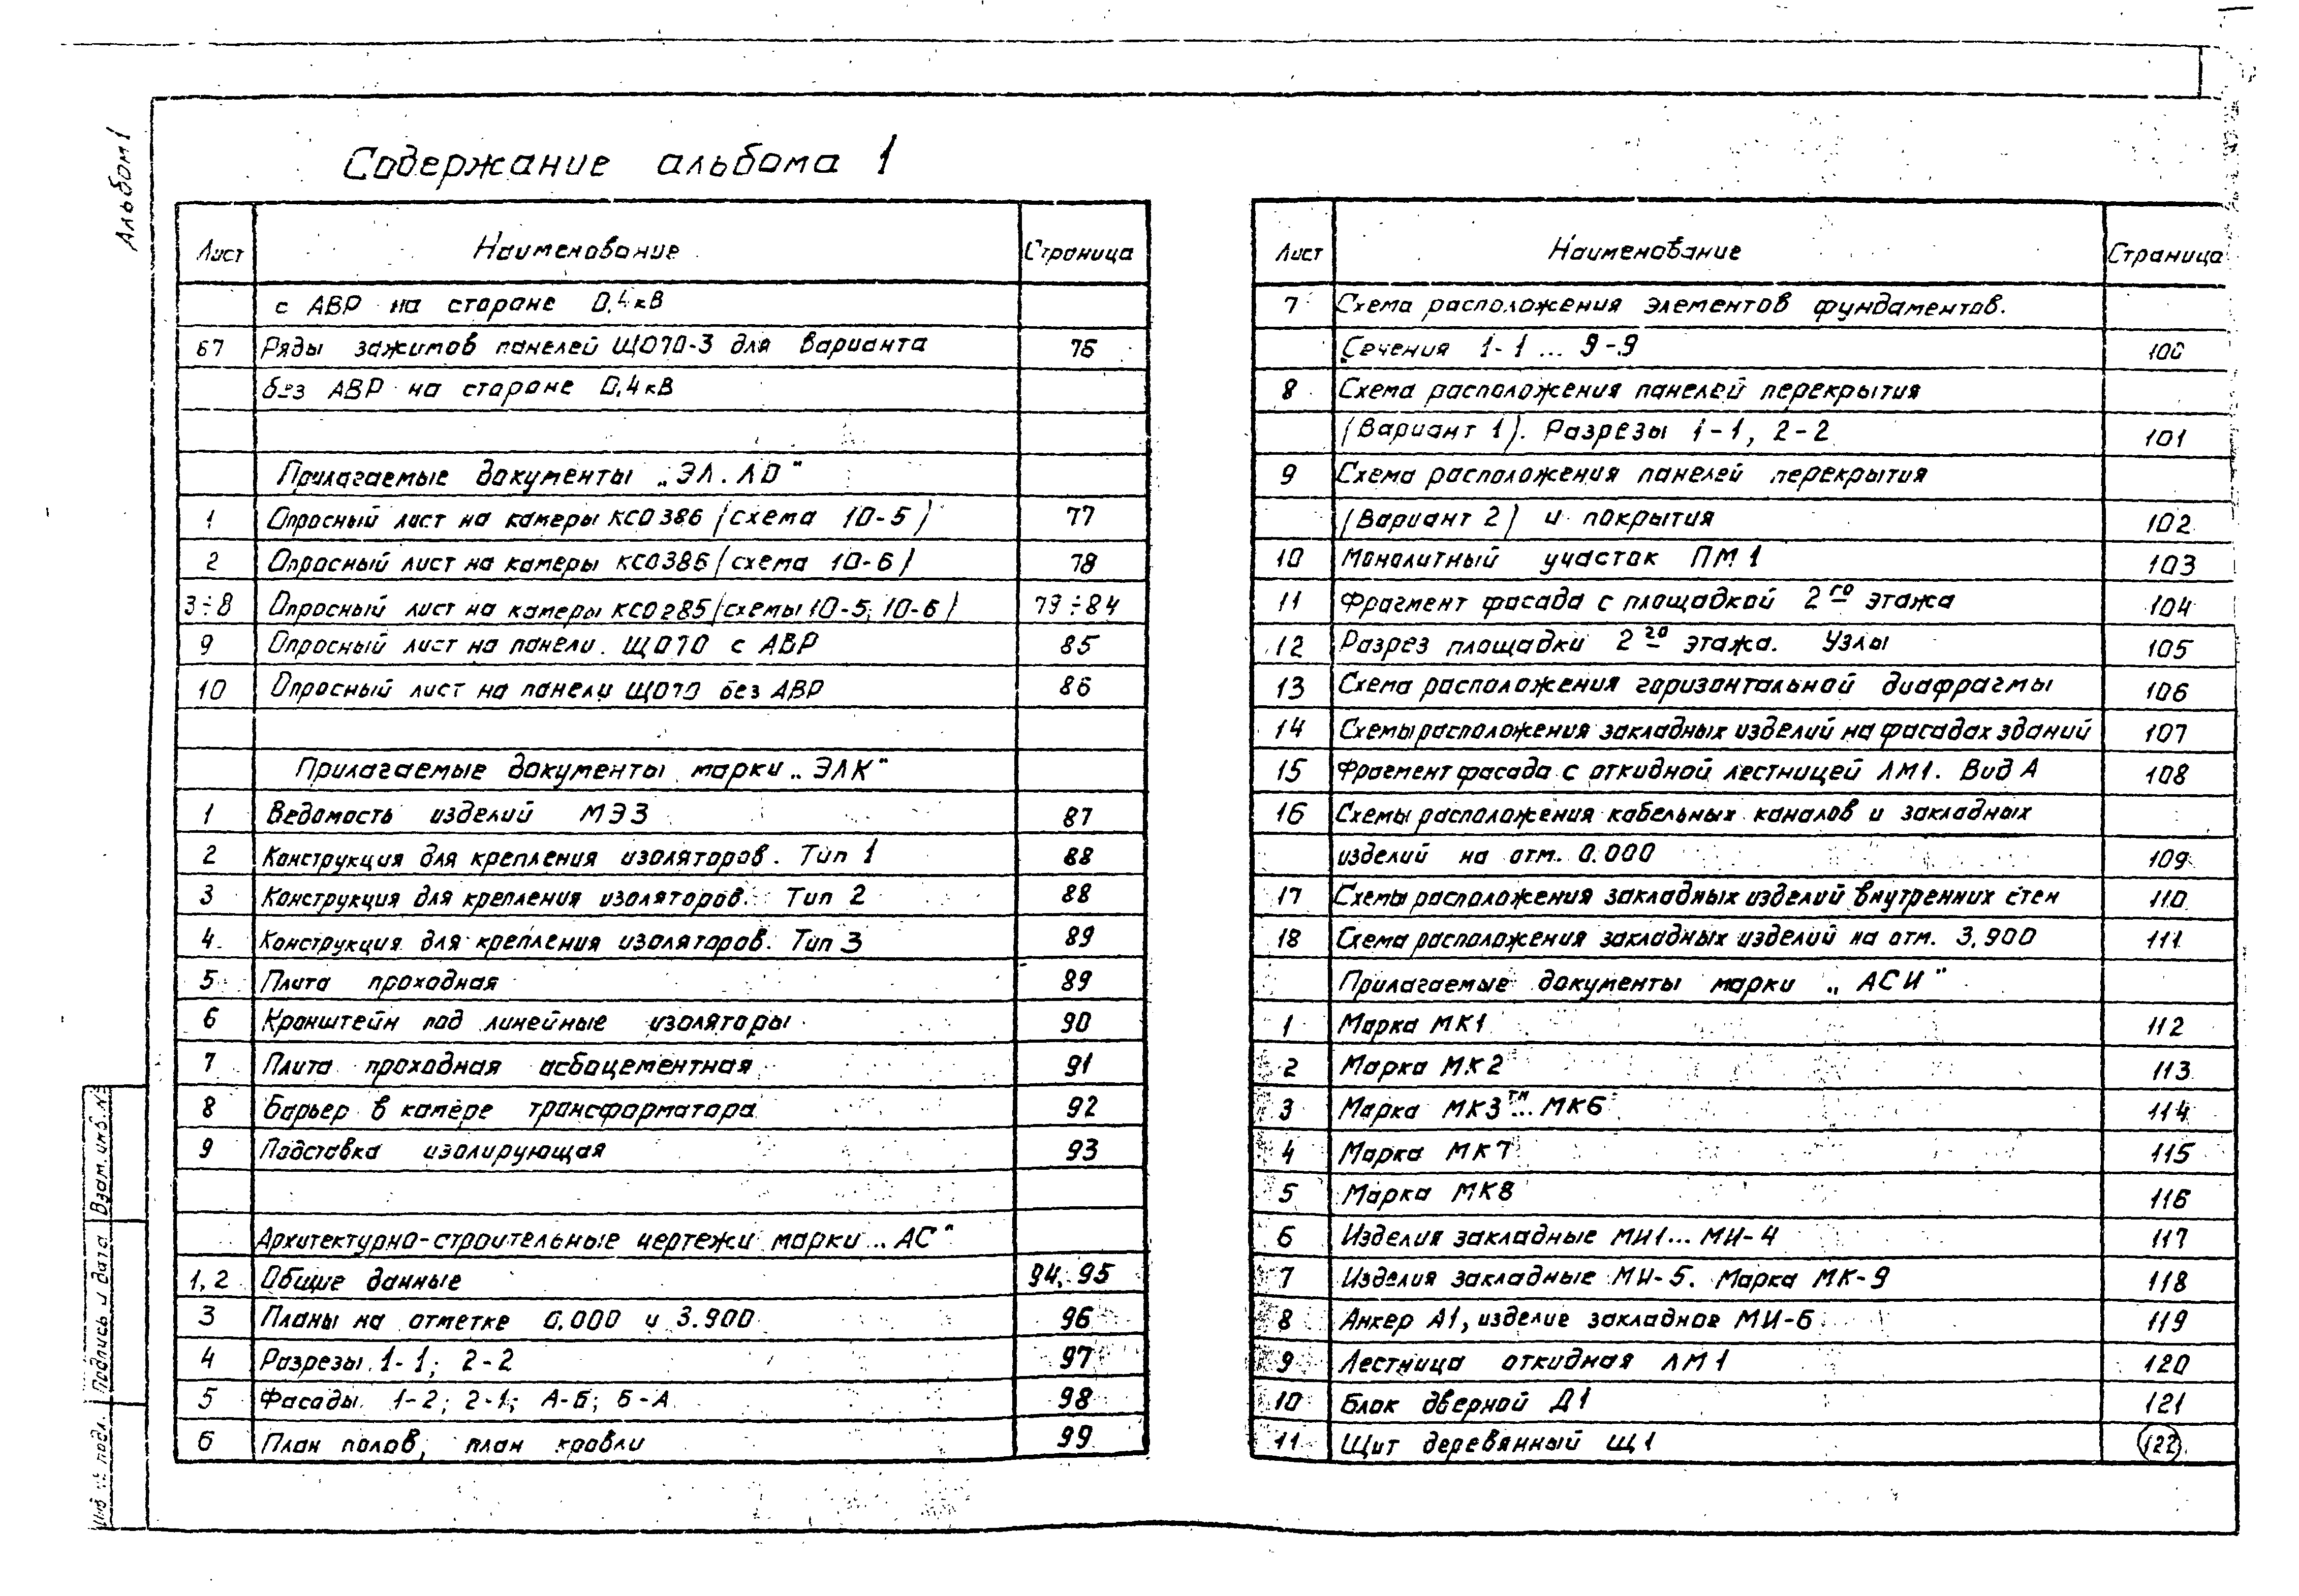 Альбом 1
Содержание альбома 1
Лист Наименование Страница
с АВР на стороне 0,4 кВ
67 Ряды зажимов панелей ЩО70-3 для варианта 76
без АВР на стороне 0,4 кВ
Прилагаемые документы „ЭЛ.ЛО"
1 Опросный лист на камеры КСО386 (схема 10-5) 77
2 Опросный лист на камеры КСО386 (схема 10-6) 78
3÷8 Опросный лист на камеры КСО285 (схемы 10-5; 10-6) 79÷84
9 Опросный лист на панели ЩО70 с АВР 85
10 Опросный лист на панели ЩО70 без АВР 86
Прилагаемые документы марки „ЭЛК"
1 Ведомость изделий МЭЗ 87
2 Конструкция для крепления изоляторов. Тип 1 88
3 Конструкция для крепления изоляторов. Тип 2 88
4 Конструкция для крепления изоляторов. Тип 3 89
5 Плита проходная 89
6 Кронштейн под линейные изоляторы 90
7 Плита проходная асбоцементная 91
8 Барьер в камере трансформатора 92
9 Подставка изолирующая 93
Архитектурно-строительные чертежи марки „АС"
1,2 Общие данные 94, 95
3 Планы на отметке 0.000 и 3.900 96
4 Разрезы 1-1; 2-2 97
5 Фасады 1-2; 2-1; А-Б; Б-А 98
6 План полов, план кровли 99
Лист Наименование Страница
7 Схема расположения элементов фундаментов.
Сечения 1-1 ... 9-9 100
8 Схема расположения панелей перекрытия
(Вариант 1). Разрезы 1-1, 2-2 101
9 Схема расположения панелей перекрытия
(Вариант 2) и покрытия 102
10 Монолитный участок ПМ1 103
11 Фрагмент фасада с площадкой 2го этажа 104
12 Разрез площадки 2го этажа. Узлы 105
13 Схема расположения горизонтальной диафрагмы 106
14 Схемы расположения закладных изделий на фасадах зданий 107
15 Фрагмент фасада с откидной лестницей ЛМ1. Вид А 108
16 Схемы расположения кабельных каналов и закладных
изделий на отм. 0.000 109
17 Схемы расположения закладных изделий внутренних стен 110
18 Схема расположения закладных изделий на отм. 3.900 111
Прилагаемые документы марки „АСИ"
1 Марка МК1 112
2 Марка МК2 113
3 Марка МК3 ... МК6 114
4 Марка МК7 115
5 Марка МК8 116
6 Изделия закладные МИ1... МИ-4 117
7 Изделия закладные МИ-5. Марка МК-9 118
8 Анкер А1, изделие закладное МИ-6 119
9 Лестница откидная ЛМ1 120
10 Блок дверной Д1 121
11 Щит деревянный Щ1 122
Взам. инв. №
Подпись и дата
Инв № подл.